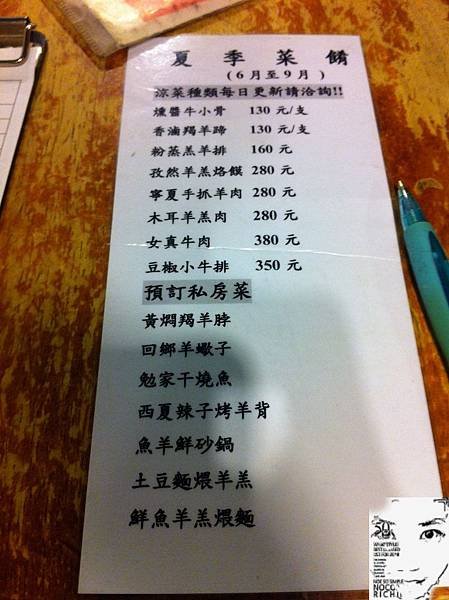 夏季菜餚
(6月至9月)
涼菜種類每日更新請洽詢!!
燻醬牛小骨 130 元/支
香滷羯羊蹄 130 元/支
粉蒸羔羊排 160 元
孜然羊羔烙饃 280 元
寧夏手抓羊肉 280 元
木耳羊羔肉 280 元
女真牛肉 380 元
豆椒小牛排 350 元
預訂私房菜
黃燜羯羊脖
回鄉羊蠍子
勉家干燒魚
西夏辣子烤羊背
魚羊鮮砂鍋
土豆麵煨羊羔
鮮魚羊羔煨麵
NOCO
RICH